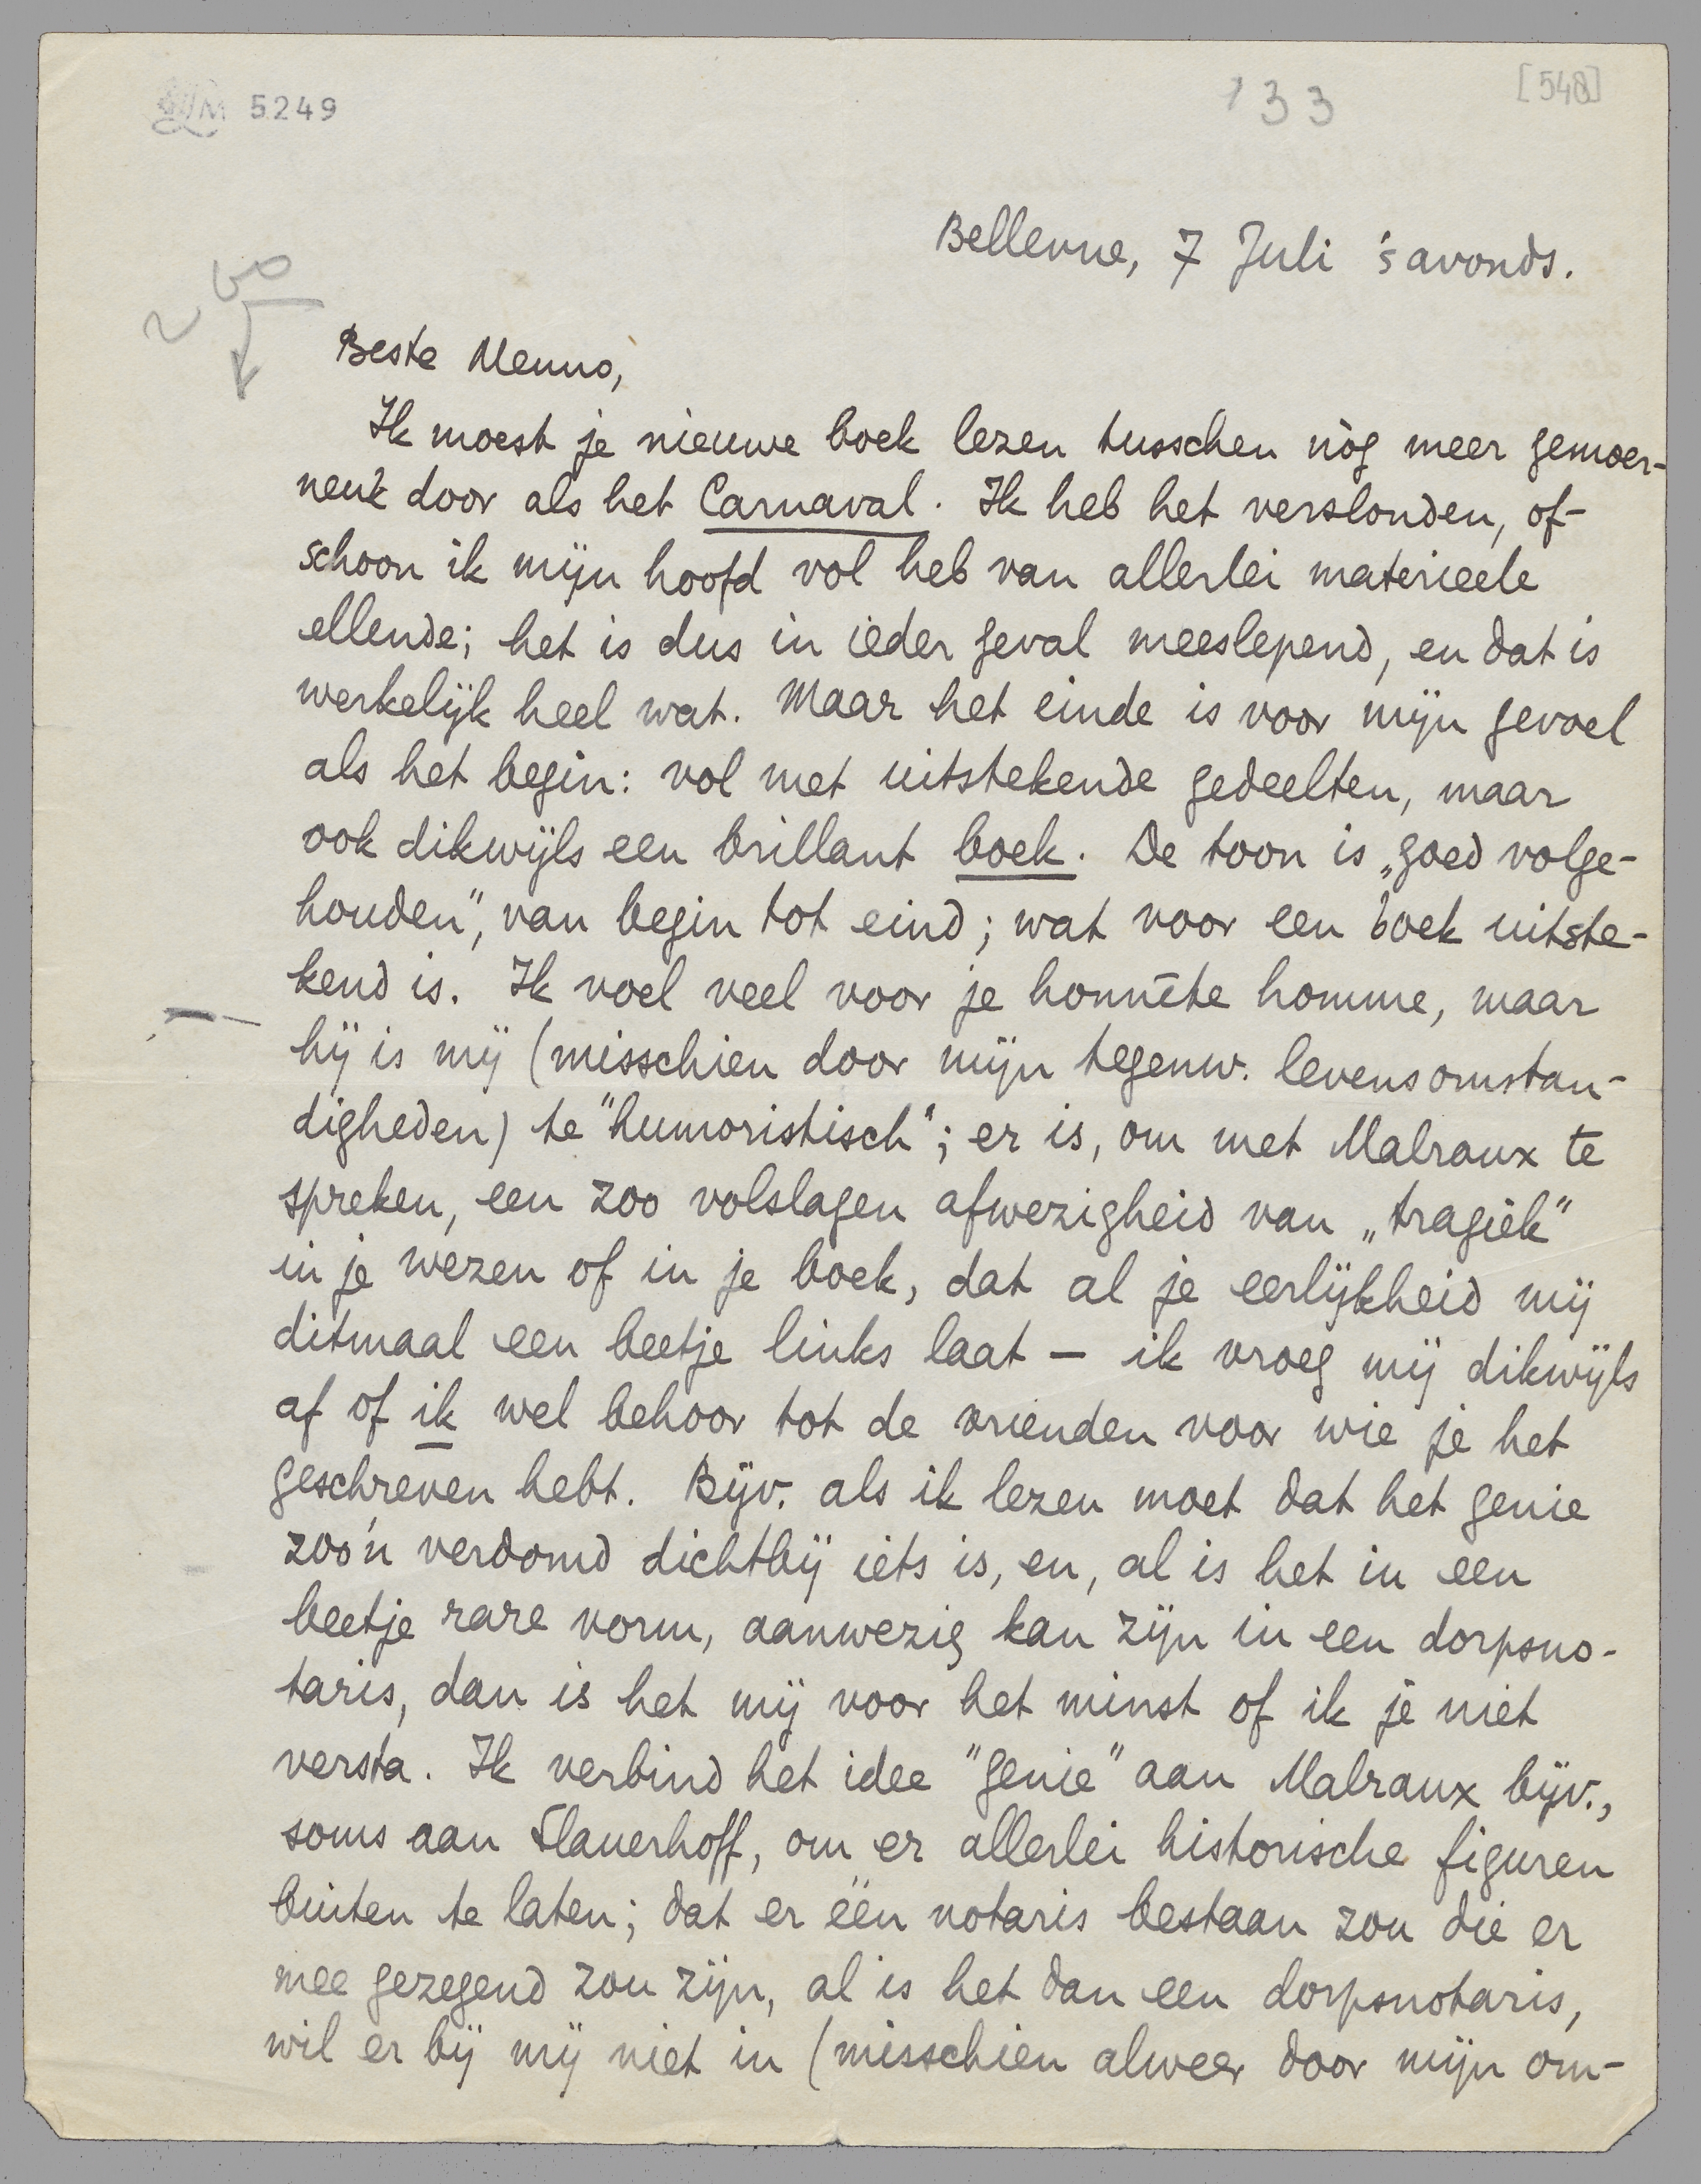 5249
133
[548]
Bellevue, 7 Juli 's avonds.
Beste Menno,
Ik moest je nieuwe boek lezen tusschen nòg meer gemoer-
neuk door als het Carnaval. Ik heb het verslonden, of-
schoon ik mijn hoofd vol heb van allerlei materieele
ellende; het is dus in ieder geval meeslepend, en dat is
werkelijk heel wat. Maar het einde is voor mijn gevoel
als het begin: vol met uitstekende gedeelten, maar
ook dikwijls een brillant boek. De toon is „goed volge-
houden", van begin tot eind; wat voor een boek uitste-
kend is. Ik voel veel voor je honnête homme, maar
hij is mij (misschien door mijn tegenw. levensomstan-
digheden) te "humoristisch"; er is, om met Malraux te
spreken, een zoo volslagen afwezigheid van „tragiek"
in je wezen of in je boek, dat al je eerlijkheid mij
ditmaal een beetje links laat – ik vroeg mij dikwijls
af of ik wel behoor tot de vrienden voor wie je het
geschreven hebt. Bijv. als ik lezen moet dat het genie
zoo'n verdomd dichtbij iets is, en, al is het in een
beetje rare vorm, aanwezig kan zijn in een dorpsno-
taris, dan is het mij voor het minst of ik je niet
versta. Ik verbind het idee "genie" aan Malraux bijv.,
soms aan Slauerhoff, om er allerlei historische figuren
buiten te laten; dat er één notaris bestaan zou die er
mee gezegend zou zijn, al is het dan een dorpsnotaris,
wil er bij mij niet in (misschien alweer door mijn om-